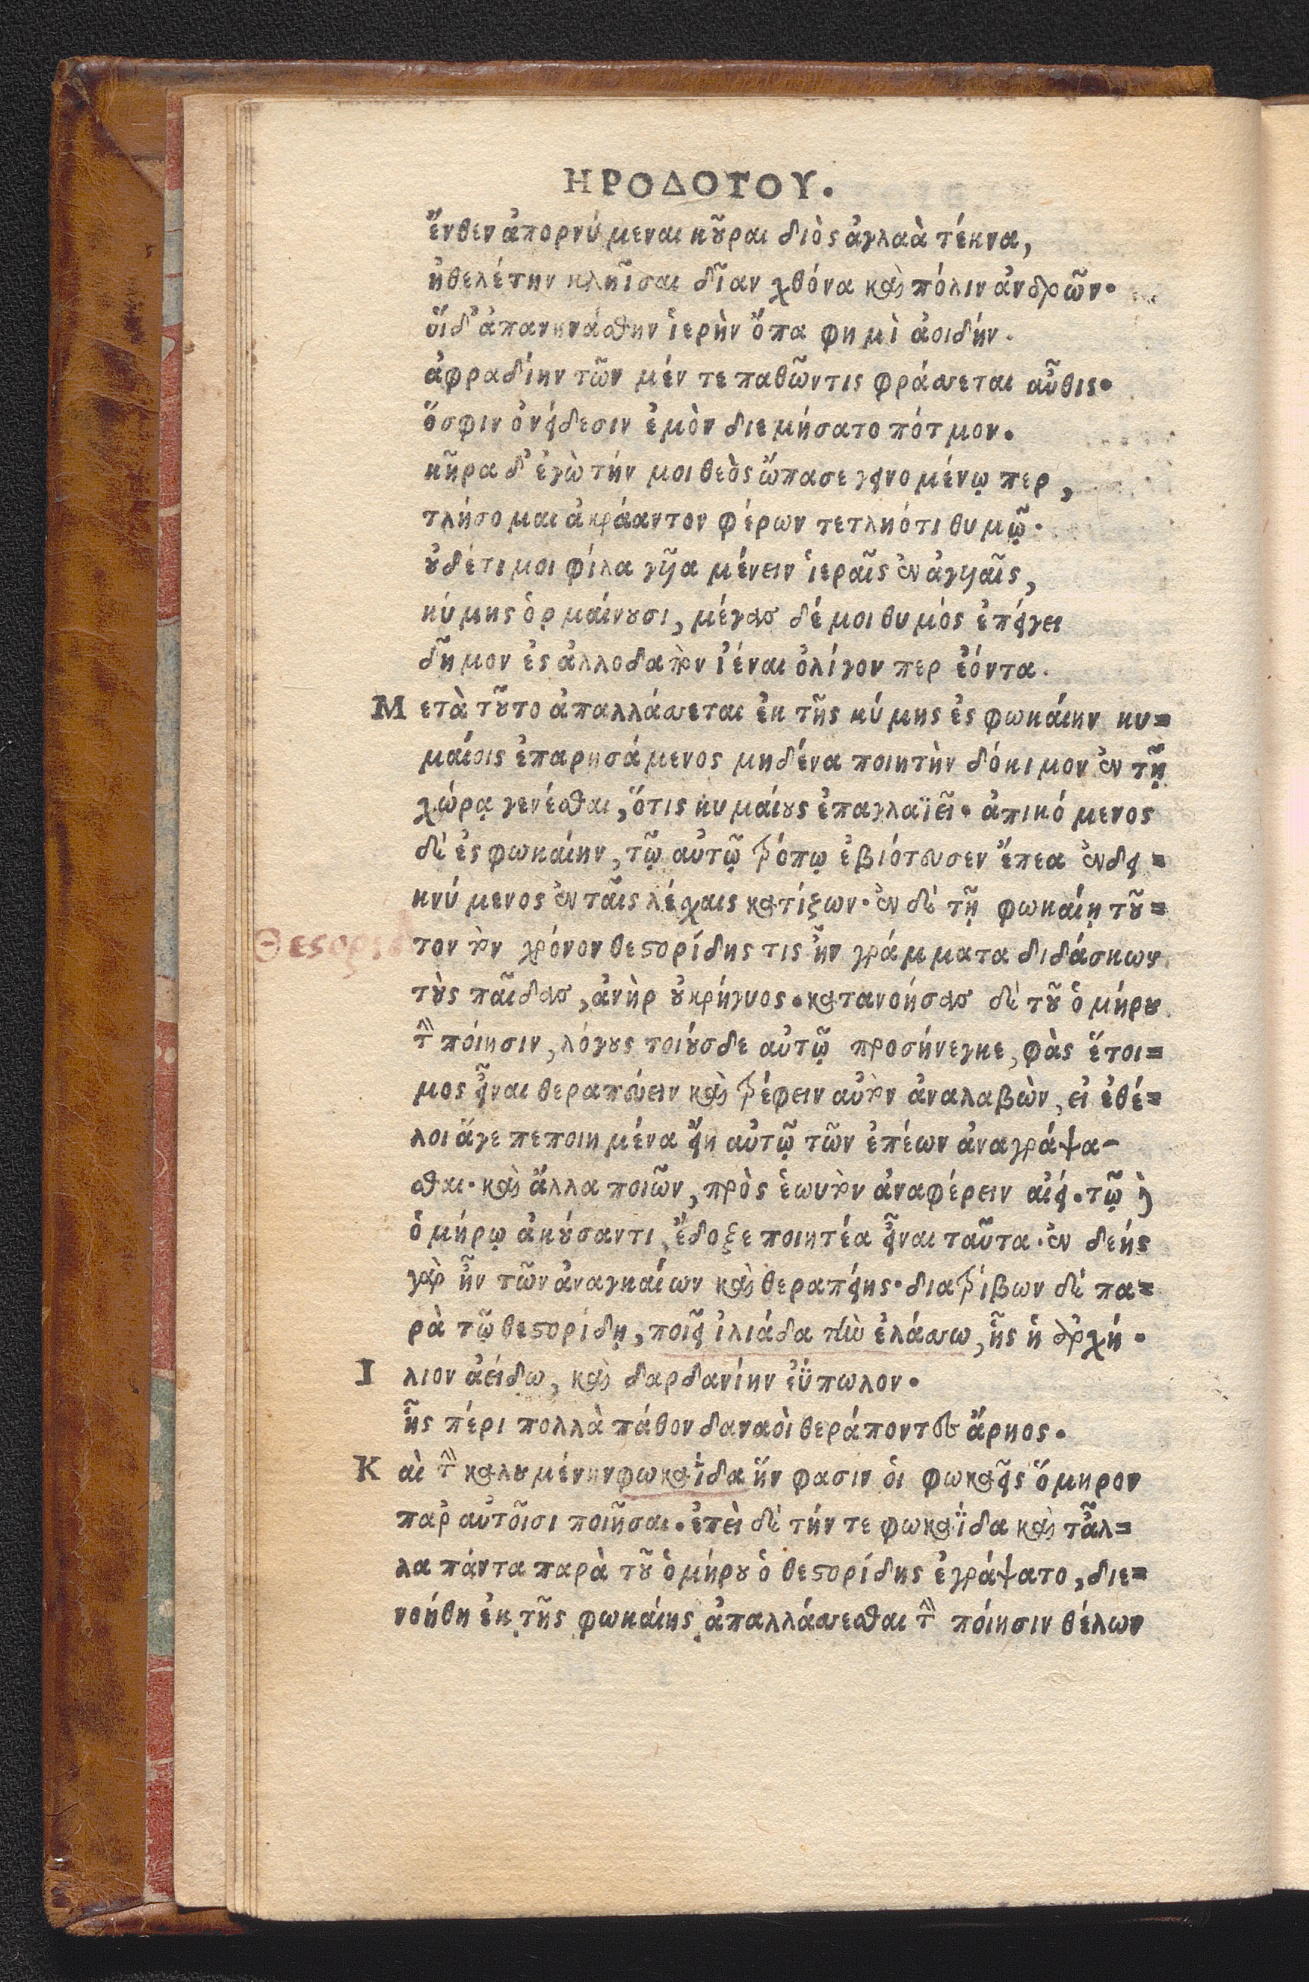 ΗΡΟΔΟΤΟΥ.
ἔνθεν ἀπορνύμεναι κοῦραι διὸς ἀγλαὰ τέκνα,
ἠθελέτην κληῖσαι δῖαν χθόνα καὶ πόλιν ἀνδρῶν·
οἵδ' ἀπανηνάσθην ἱερὴν ὄπα φημὶ ἀοιδήν.
ἀφραδίῃν τῶν μέν τε παθῶντις φράσσεται αὖθις·
ὅσφιν ὀνείδεσιν ἐμὸν διεμήσατο πότμον.
κῆρα δ' ἐγὼ τήν μοι θεὸς ὤπασε γεινομένῳ περ,
τλήσομαι ἀκράαντον φέρων τετληότι θυμῷ·
οὐδέτι μοι φίλα γυῖα μένειν ἱεραῖς ἐν ἀγυιαῖς,
κύμης ὁρμαίνουσι, μέγας δέ μοι θυμός ἐπείγει
δῆμον ἐς ἀλλοδαπὸν ἰέναι ὀλίγον περ ἐόντα.
Μετὰ τοῦτο ἀπαλλάσσεται ἐκ τῆς κύμης ἐς φωκαίην κυ=
μαίοις ἐπαρησάμενος μηδένα ποιητὴν δόκιμον ἐν τῇ
χώρᾳ γενέσθαι, ὅτις κυμαίους ἐπαγλαϊεῖ· ἀπικόμενος
δὲ ἐς φωκαίην, τῷ αὐτῷ τρόπῳ ἐβιότευσεν ἔπεα ἐνδει=
κνύμενος ἐν ταῖς λέχαις κατίξων· ἐν δὲ τῇ φωκαίῃ τοῦ=
Θεςορίδ
τον τὸν χρόνον θεςορίδης τις ἦν γράμματα διδάσκων
τοὺς παῖδας, ἀνὴρ οὐ κρήγυος· κατανοήσας δὲ τοῦ ὁμήρου
τὴν ποίησιν, λόγους τοιούσδε αὐτῷ προσήνεγκε, φὰς ἕτοι=
μος εἶναι θεραπεύειν καὶ τρέφειν αὐτὸν ἀναλαβὼν, εἰ ἐθέ=
λοι ἅγε πεποιημένα εἴη αὐτῷ τῶν ἐπέων ἀναγράψα-
σθαι· καὶ ἄλλα ποιῶν, πρὸς ἑωυτὸν ἀναφέρειν αἰεί· τῷ δὲ
ὁμήρῳ ἀκούσαντι, ἔδοξε ποιητέα εἶναι ταῦτα· ἐν δεής
γὰρ ἦν τῶν ἀναγκαίων καὶ θεραπείης· διατρίβων δὲ πα=
ρὰ τῷ θεςορίδῃ, ποιεῖ ἰλιάδα τὴν ἐλάσσω, ἧς ἡ ἀρχή·
Ιλιον ἀείδω, καὶ δαρδανίην ἐΰπωλον·
ἧς πέρι πολλὰ πάθον δαναοὶ θεράποντες ἄρηος·
Καὶ τὴν καλουμένην φωκαΐδα ἥν φασιν οἱ φωκαεῖς ὅμηρον
παρ' αὐτοῖσι ποιῆσαι· ἐπεὶ δὲ τήν τε φωκαΐδα καὶ τἆλ=
λα πάντα παρὰ τοῦ ὁμήρου ὁ θεςορίδης ἐγράψατο, διε=
νοήθη ἐκ τῆς φωκαίης ἀπαλλάσσεσθαι τὴν ποίησιν θέλων